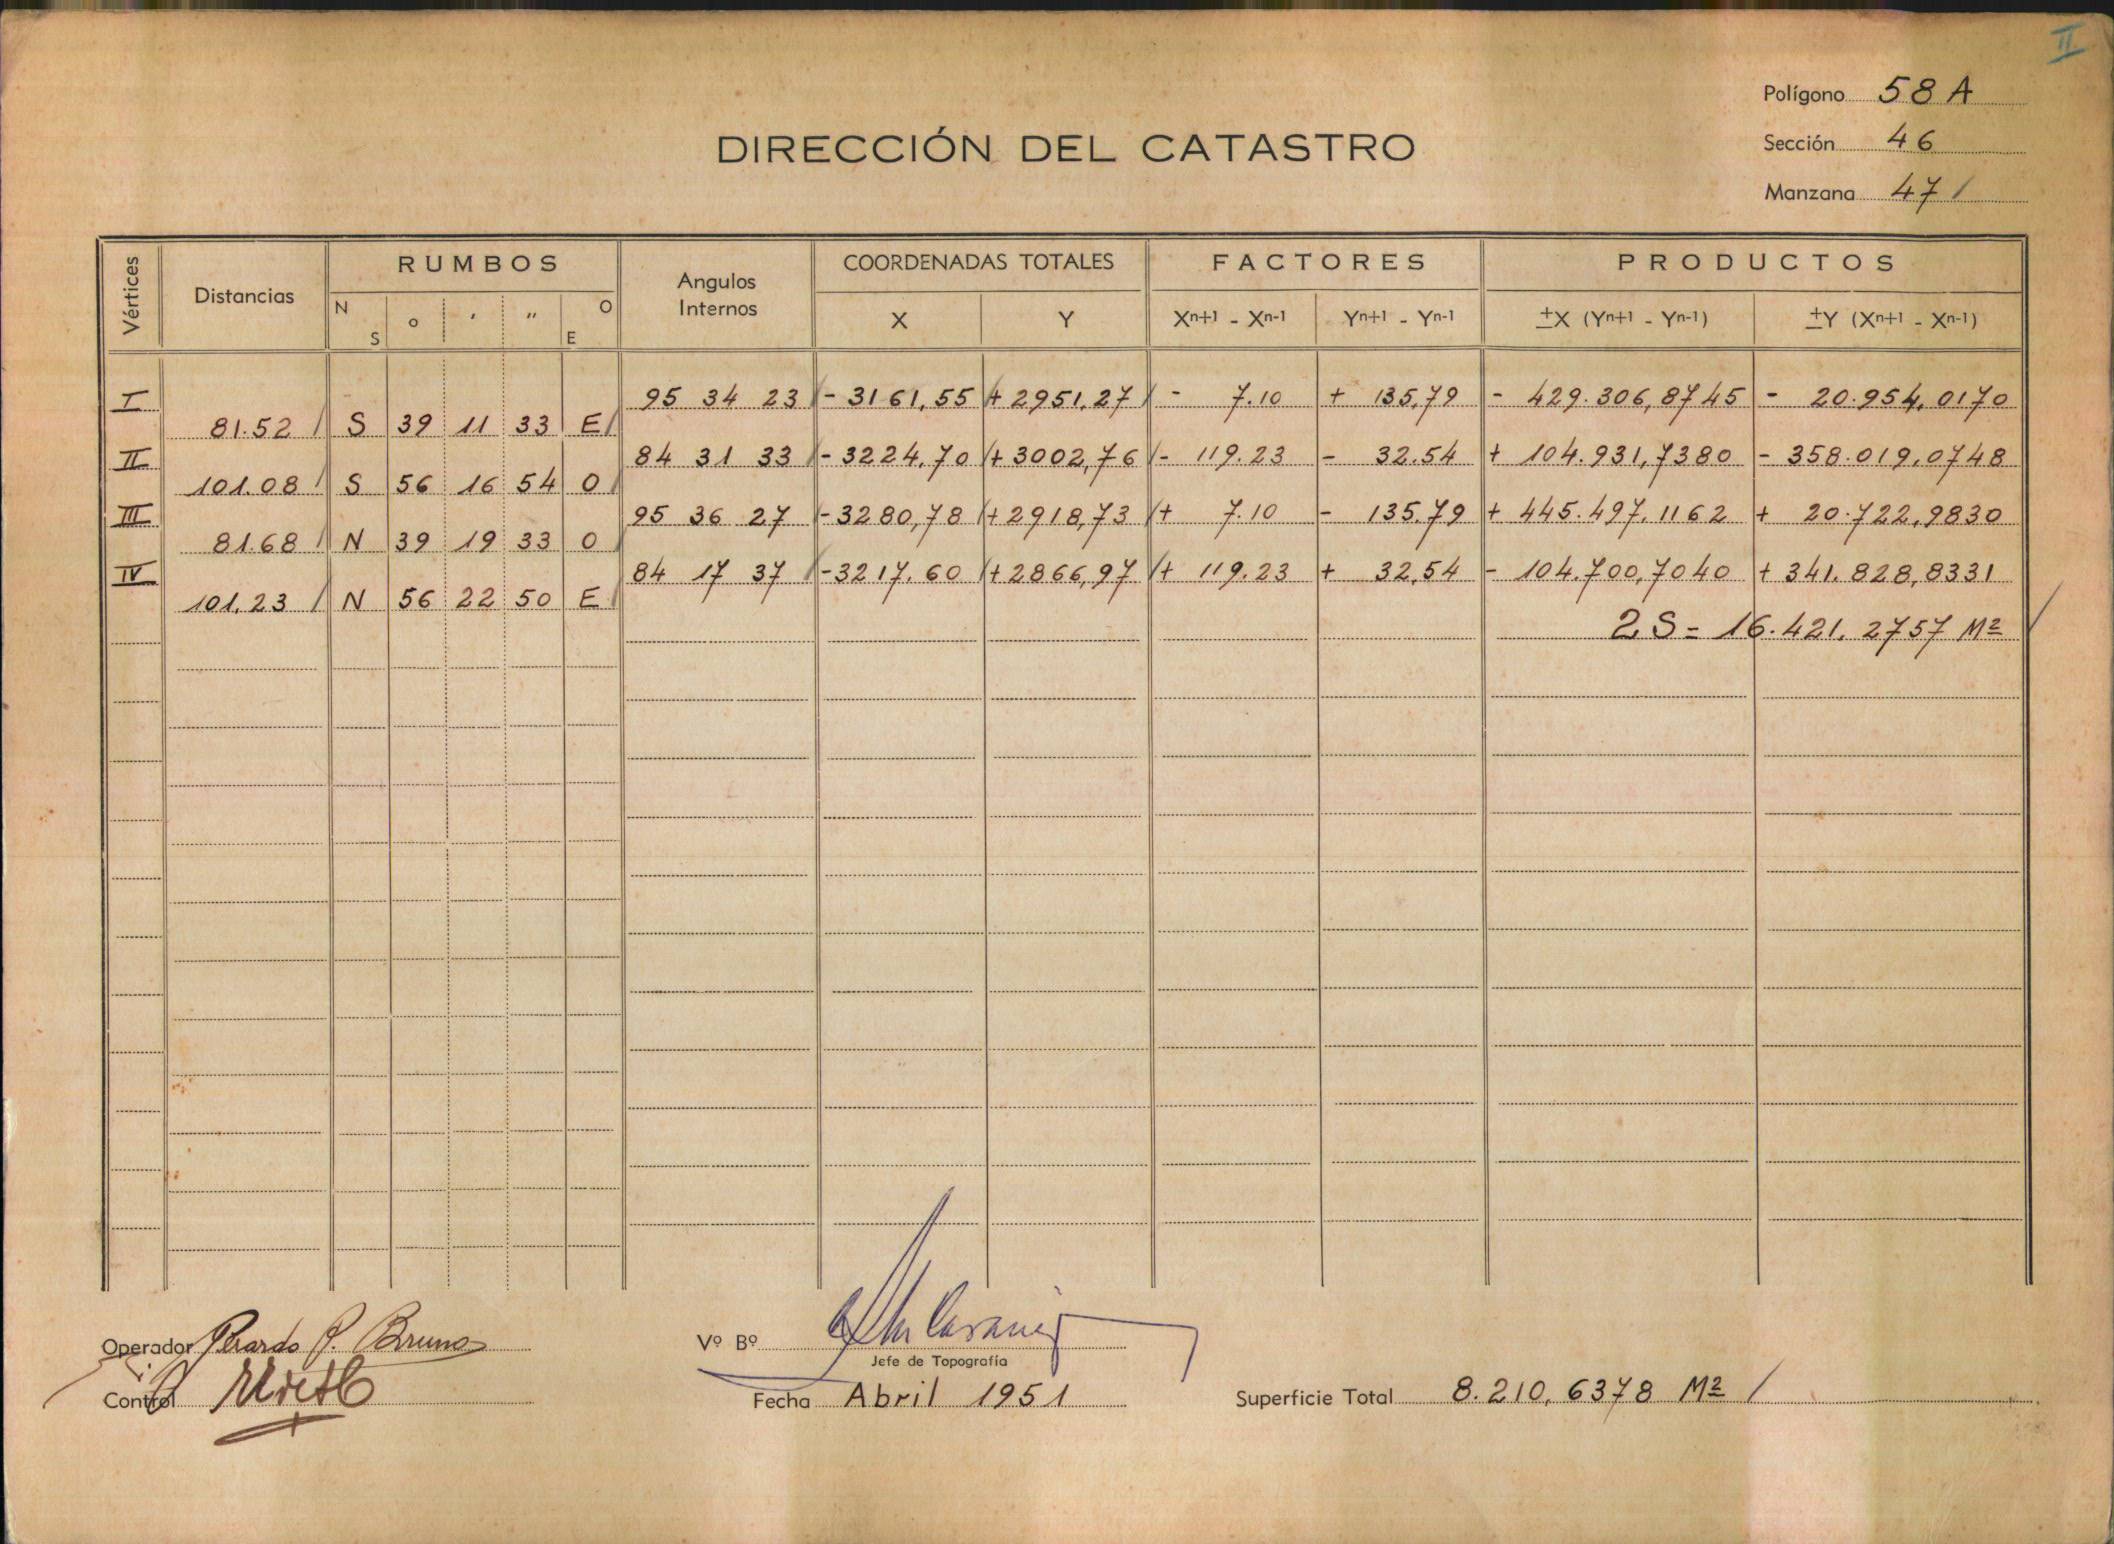 II
Polígono 58 A
DIRECCIÓN DEL CATASTRO
Sección 46
Manzana 47 /
Vértices
Distancias
RUMBOS
N S ° ' " O E
Angulos Internos
COORDENADAS TOTALES
X Y
FACTORES
Xn+1 - Xn-1 Yn+1 - Yn-1
PRODUCTOS
±X (Yn+1 - Yn-1) ±Y (Xn+1 - Xn-1)
I 95 34 23 - 3161,55 + 2951,27 - 7.10 + 135,79 - 429.306,8745 - 20.954,0170
81.52 S 39 11 33 E
II 84 31 33 - 3224,70 + 3002,76 - 119.23 - 32.54 + 104.931,7380 - 358.019,0748
101.08 S 56 16 54 O
III 95 36 27 - 3280,78 + 2918,73 + 7.10 - 135.79 + 445.497,1162 + 20.722,9830
81.68 N 39 19 33 O
IV 84 17 37 - 3217.60 + 2866,97 + 119.23 + 32,54 - 104.700,7040 + 341.828,8331
101.23 N 56 22 50 E
2 S = 16.421,2757 M2
Operador P. Bruno
Vº Bº
Jefe de Topografía
Control
Fecha Abril 1951
Superficie Total 8.210,6378 M2 /